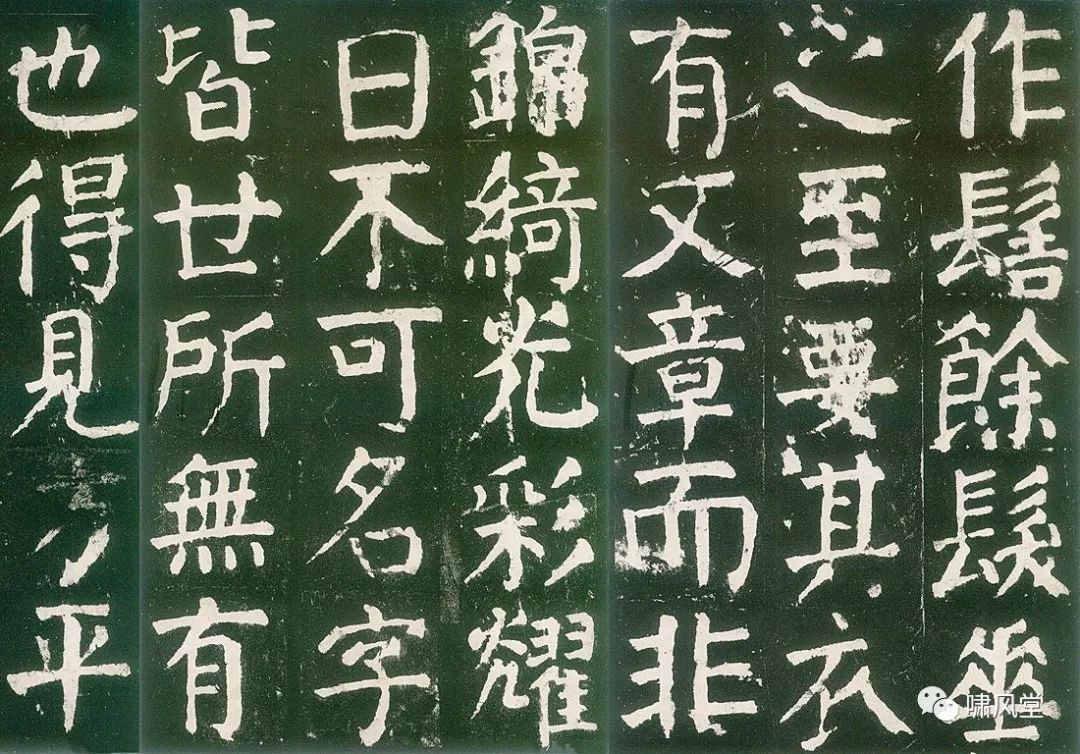 作髻餘髮垂
之至要其衣
有文章而非
錦綺光彩耀
日不可名字
皆世所無有
也得見方平
啸风堂